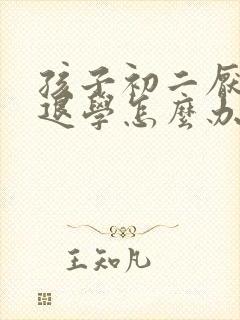 孩子初二厭
退學怎麼办
王知凡